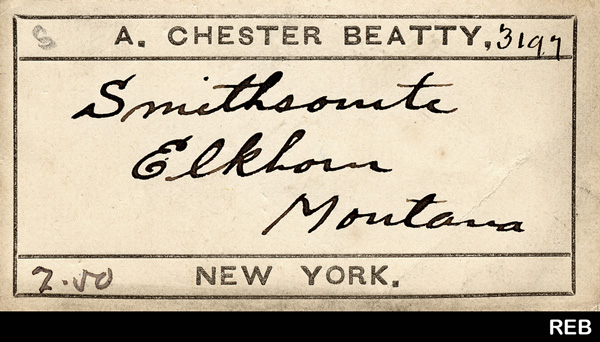 S A. CHESTER BEATTY, 3197
Smithsonite
Elkhorn
Montana
7.50 NEW YORK.
REB